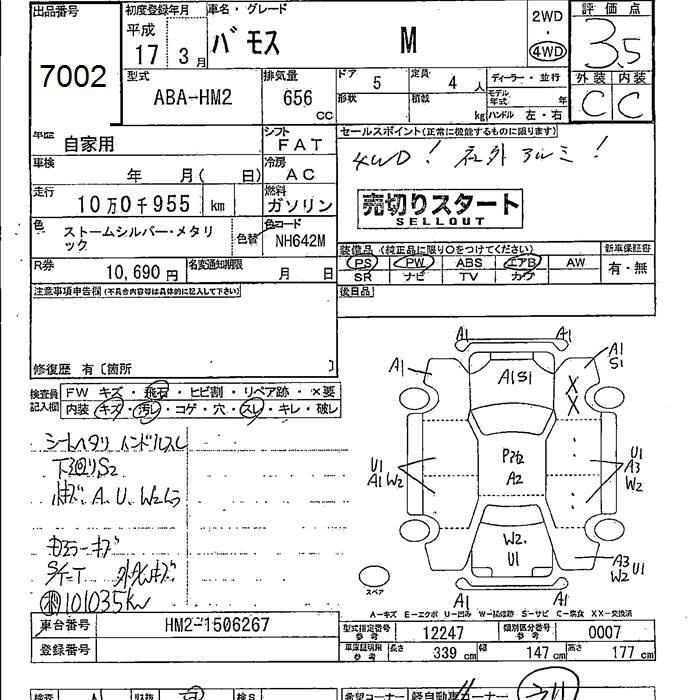 出品番号 初度登録年月 車名・グレード 評価点
7002 平成 17 3月 バモス M 2WD・4WD 3.5
型式 排気量 ドア 5 定員 4人 ディーラー・並行 外装 内装
ABA-HM2 656 CC 形状 積載 kg モデル年式 年 ハンドル 左・右 C C
車歴 自家用 シフト FAT セールスポイント(正常に機能するものに限ります)
車検 年 月( 日) 冷房 AC 4WD! 社外アルミ!
走行 10万0千955 km 燃料 ガソリン 売切りスタート
SELLOUT
色 ストームシルバー・メタリック 色替 色コード NH642M
装備品(純正品に限り○をつけてください) 新車保証書
PS PW ABS エアB AW 有・無
SR ナビ TV カワ
R券 10,690円 名変通知期限 月 日
注意事項申告欄(不具合内容等は具体的に記入して下さい) 後日品
修復歴 有〔箇所 〕
検査員記入欄 FW キズ・飛石・ヒビ割・リペア跡・×要
内装 キズ・汚レ・コゲ・穴・スレ・キレ・破レ
シートヘタリ ハンドルスレ
下廻りS2
A1 A1
A1 A1S1 A1 S1
X X
U1 A1 W2 A2 U1 A3 W2
W2 U1 A3 W2 U1
A1 A1
スペア
101035km
A-キズ E-エクボ U-凹み W-補修跡 S-サビ C-腐食 XX-交換済
車台番号 HM2-1506267 型式指定番号 参考 12247 類別区分番号 参考 0007
登録番号 車庫証明用 参考 長さ 339cm 幅 147cm 高さ 177cm
希望コーナー 軽自動車コーナー